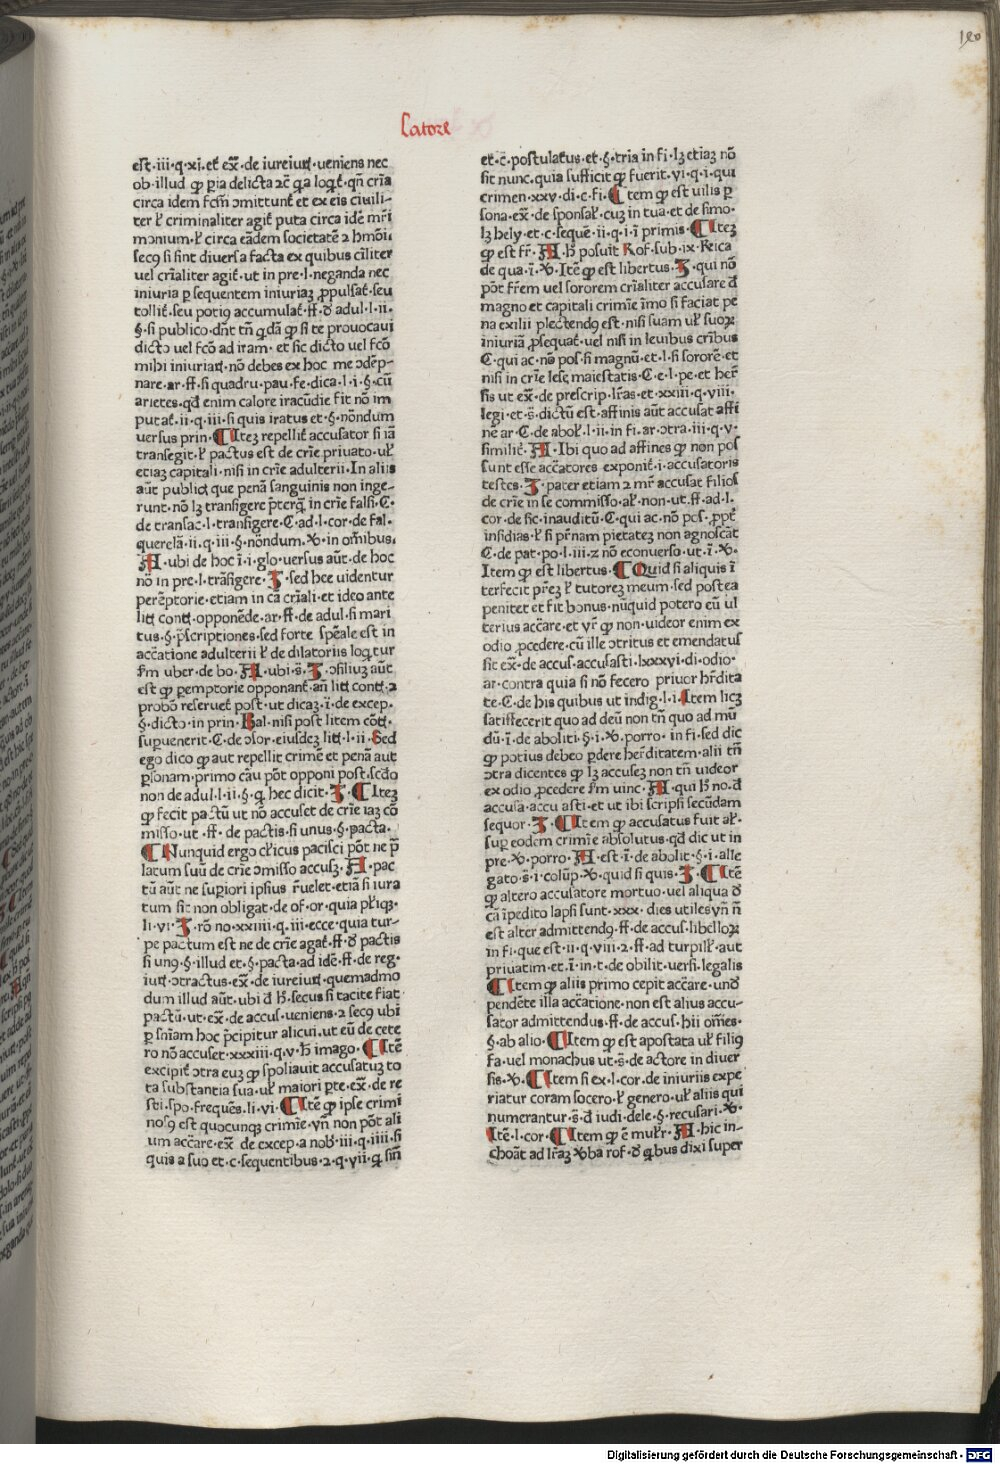 latore
est·iii·q·xi·et̃ ex̃·de iureiur̃·ueniens nec
ob·illud qp p̱ia delicta ⁊c̃ q̃a loq̃t̃·qñ crĩa
circa idem fcm̃ ɔmittunt̃ et ex eis ciuili-
ter ł criminaliter agit̃ puta circa idẽ mr̃i
monium·ł circa eãdem societatẽ ⁊ hmõi·
secꝰ si sint diuersa facta ex quibus ciliter
uel crĩaliter agit̃·ut in pre·l·neganda nec
iniuria p̱ sequentem iniuriaꝫ ꝓpulsat̃·seu
tollit̃·seu potiꝰ accumulat̃·ff·ð adul·l·ii·
§·si publico·dñt tñ q̃dã qp si te prouocaui
dicto uel fcõ ad iram·et sic dicto uel fcõ
mihi iniuriat̃·nõ debes ex hoc me ɔdẽp-
nare·ar·ff·si quadru·pau·fe·dica·l·i·§·cũ
arietes·qđ enim calore iracũdie fit nõ im
putat̃·ii·q·iii·si quis iratus et·§·nõndum
uersus prin·¶Iteꝫ repellit̃ accusator si iã
transegit·ł pactus est de crĩe priuato·uł
etiaꝫ capitali·nisi in crĩe adulterii·In aliis
aũt publicꝭ que penã sanguinis non inge-
runt·nõ lꝫ transigere p̃terq̃ in crĩe falsi·C·
de transac̃·l·transigere·C·ad·l·cor·de fal·
querelã·ii·q·iii·§·nõndum·℣·in om̃ibus·
A·ubi de hoc ĩ·i·glo·uersus aũt·de hoc
nõ in pre·l·trãsigere·J·sed hee uidentur
perẽptorie·etiam in cã crĩali·et ideo ante
litꝭ contꝭ·opponẽde·ar·ff·de adul·si mari
tus·§·p̃scriptiones·sed forte sp̃eale est in
acc̃atione adulterii ł de dilatoriis loq̃tur
s̃m uber·de bo·A·ubi·s̃·J·ɔsiliuꝫ aũt
est qp p̱emptorie opponant̃·añ litꝭ contꝭ·⁊
probõ reseruet̃ post·ut dicaꝫ·ĩ·de excep·
§·dicto·in prin·Bal·nisi post litem cõtꝭ·
supuenerit·C·de ɔsor·eiusdeꝫ litꝭ·l·ii·Sed
ego dico qp aut repellit crimẽ et penã aut
p̱sonam·primo cãu põt opponi post·scðo
non de adul·l·ii·§·q̃ hec dicit·J·¶Iteꝫ
qp fecit pactũ ut nõ accuset de crĩe iaꝫ cõ
misso·ut·ff·de pactis·si unus·§·pacta·
¶Nunquid ergo cl̃icus pacisci põt ne p̃
latum suũ de crĩe ɔmisso accusꝫ·A·pac
tũ aũt ne supiori ipsius r̃uelet·etiã si iura
tum sit non obligat·de of·or·quia pler̃iqꝫ·
li·vi·J·rõ no·xxiiii·q·iii·ecce·quia tur-
pe pactum est ne de crĩe agat̃·ff·ð pactis
si unꝰ·§·illud et·§·pacta·ad idẽ·ff·de reg·
iur̃·ɔtractus·ex̃·de iureiur̃·quemadmo
dum illud aũt·ubi đ h̃·secus si tacite fiat
pactũ·ut·ex̃·de accus·ueniens·⁊ secꝰ ubi
p̱ sñiam hoc p̃cipitur alicui·ut eũ de cete
ro nõ accuset·xxxiii·q·v·h̃ imago·¶Itẽ
excipit̃ ɔtra euꝫ qp spoliauit accusatuꝫ to
ta substantia sua·uł maiori pte·ex̃·de re
sti·spo·frequẽs·li·vi·¶Itẽ qp ipse crimi
nosꝰ est quocunqꝫ crimĩe·vñ non põt ali
um acc̃are·ex̃ de excep·a nob̃·iii·q·iiii·si
quis a suo et·c·sequentibus·⁊·q·vii·q̃ siñ
et·c̃·postulatus·et·§·tria in fi·lꝫ etiaꝫ nõ
sit nunc·quia sufficit qp fuerit·vi·q·i·qui
crimen·xxv·di·c·fi·¶Item qp est uilis p̱
sona·ex̃·de sponsał·cuꝫ in tua·et de simo·
lꝫ hely·et·c·sequẽ·ii·q·i·ĩ primis·¶Iteꝫ
qp est fr̃·A·h̃ posuit Rof·sub·ix·Reica
de qua·ĩ·℣·Itẽ qp est libertus·J·qui nõ
põt fr̃em uel sororem crĩaliter accusare đ
magno et capitali crimĩe ĩmo si faciat pe
na exilii plectendꝰ est·nisi suam uł suoꝝ
iniuriã ꝓsequat̃·uel nisi in leuibus crĩbus
C·qui ac·nõ pos·si magnũ·et·l·si sororẽ·et
nisi in crĩe lese maiestatis·C·e·l·pe·et her̃
sis ut ex̃·de prescrip·lr̃as·et·xxiii·q·viii·
legi·et·s̃·dictũ est·affinis aũt accusat affi
nẽ ar·C·de aboł·l·ii·in fi·ar·ɔtra·iii·q·v·
similit̃·A·Ibi quo ad affines qp non pos
sunt esse acc̃atores exponit̃·i·accusatoris
testes·J·pater etiam ⁊ mr̃ accusat filios
de crĩe in se commisso·ał·non·ut·ff·ad·l·
cor·de sic·inauditũ·C·qui ac·nõ pos·ꝓpt̃
insidias·ł si pr̃nam pietateꝫ non agnoscãt
C·de pat·po·l·iii·⁊ nõ econuerso·ut·ĩ·℣·
Item qp est libertus·¶Quid si aliquis ĩ
terfecit pr̃eꝫ ł tutoreꝫ meum·sed postea
penitet et fit bonus·nũquid potero eũ ul
terius acc̃are·et vr̃ qp non·uideor enim ex
odio ꝓcedere·cũ ille ɔtritus et emendatus
sit·ex̃·de accus·accusasti·lxxxvi·di·odio·
ar·contra·quia si nõ fecero priuor hr̃dita
te·C·de his quibus ut indig·l·i·Item licꝫ
satiffecerit quo ad deũ non tñ quo ad mũ
dũ·ĩ·de aboliti·§·i·℣·porro·in fi·sed dic
qp potius debeo p̱dere her̃ditatem·alii tñ
ɔtra dicentes qp lꝫ accuseꝫ non tñ uideor
ex odio ꝓcedere s̃m uinc·A·qui h̃ no·đ
accusa·accu asti·et ut ibi scripsi secũdam
sequor·J·¶Item qp accusatus fuit ał·
sup eodem crimĩe absolutus·qđ dic ut in
pre·℣·porro·A·est·ĩ·de abolit·§·i·alle
gato·s̃·i·colũp·℣·quid si quis·J·¶Itẽ
qp altero accusatore mortuo·uel aliqua ð
cã ĩpedito lapsi sunt·xxx·dies utiles vñ ñ
est alter admittendꝰ·ff·de accus·libelloꝝ
in fi·que est·ii·q·viii·⁊·ff·ad turpill·aut
priuatim·et·ĩ·in·t·de obilit·uersi·legalis
¶Item qp aliis primo cepit acc̃are·unð
pendẽte illa acc̃atione·non est alius accu-
sator admittendus·ff·de accus·hii om̃es·
§·ab alio·¶Item qp est apostata uł filiꝰ
fa·uel monachus ut·s̃·de actore in diuer
sis·℣·¶Item si ex·l·cor·de iniuriis expe
riatur coram socero·ł genero·uł aliis qui
numerantur·s̃·đ iudi·dele·§·recusari·℣·
Itẽ·l·cor·¶Item qp ẽ mulr̃·A·hic in-
choãt ad lr̃aꝫ ℣ba rof·ð q̃bus dixi super
Digitalisierung gefördert durch die Deutsche Forschungsgemeinschaft - DFG